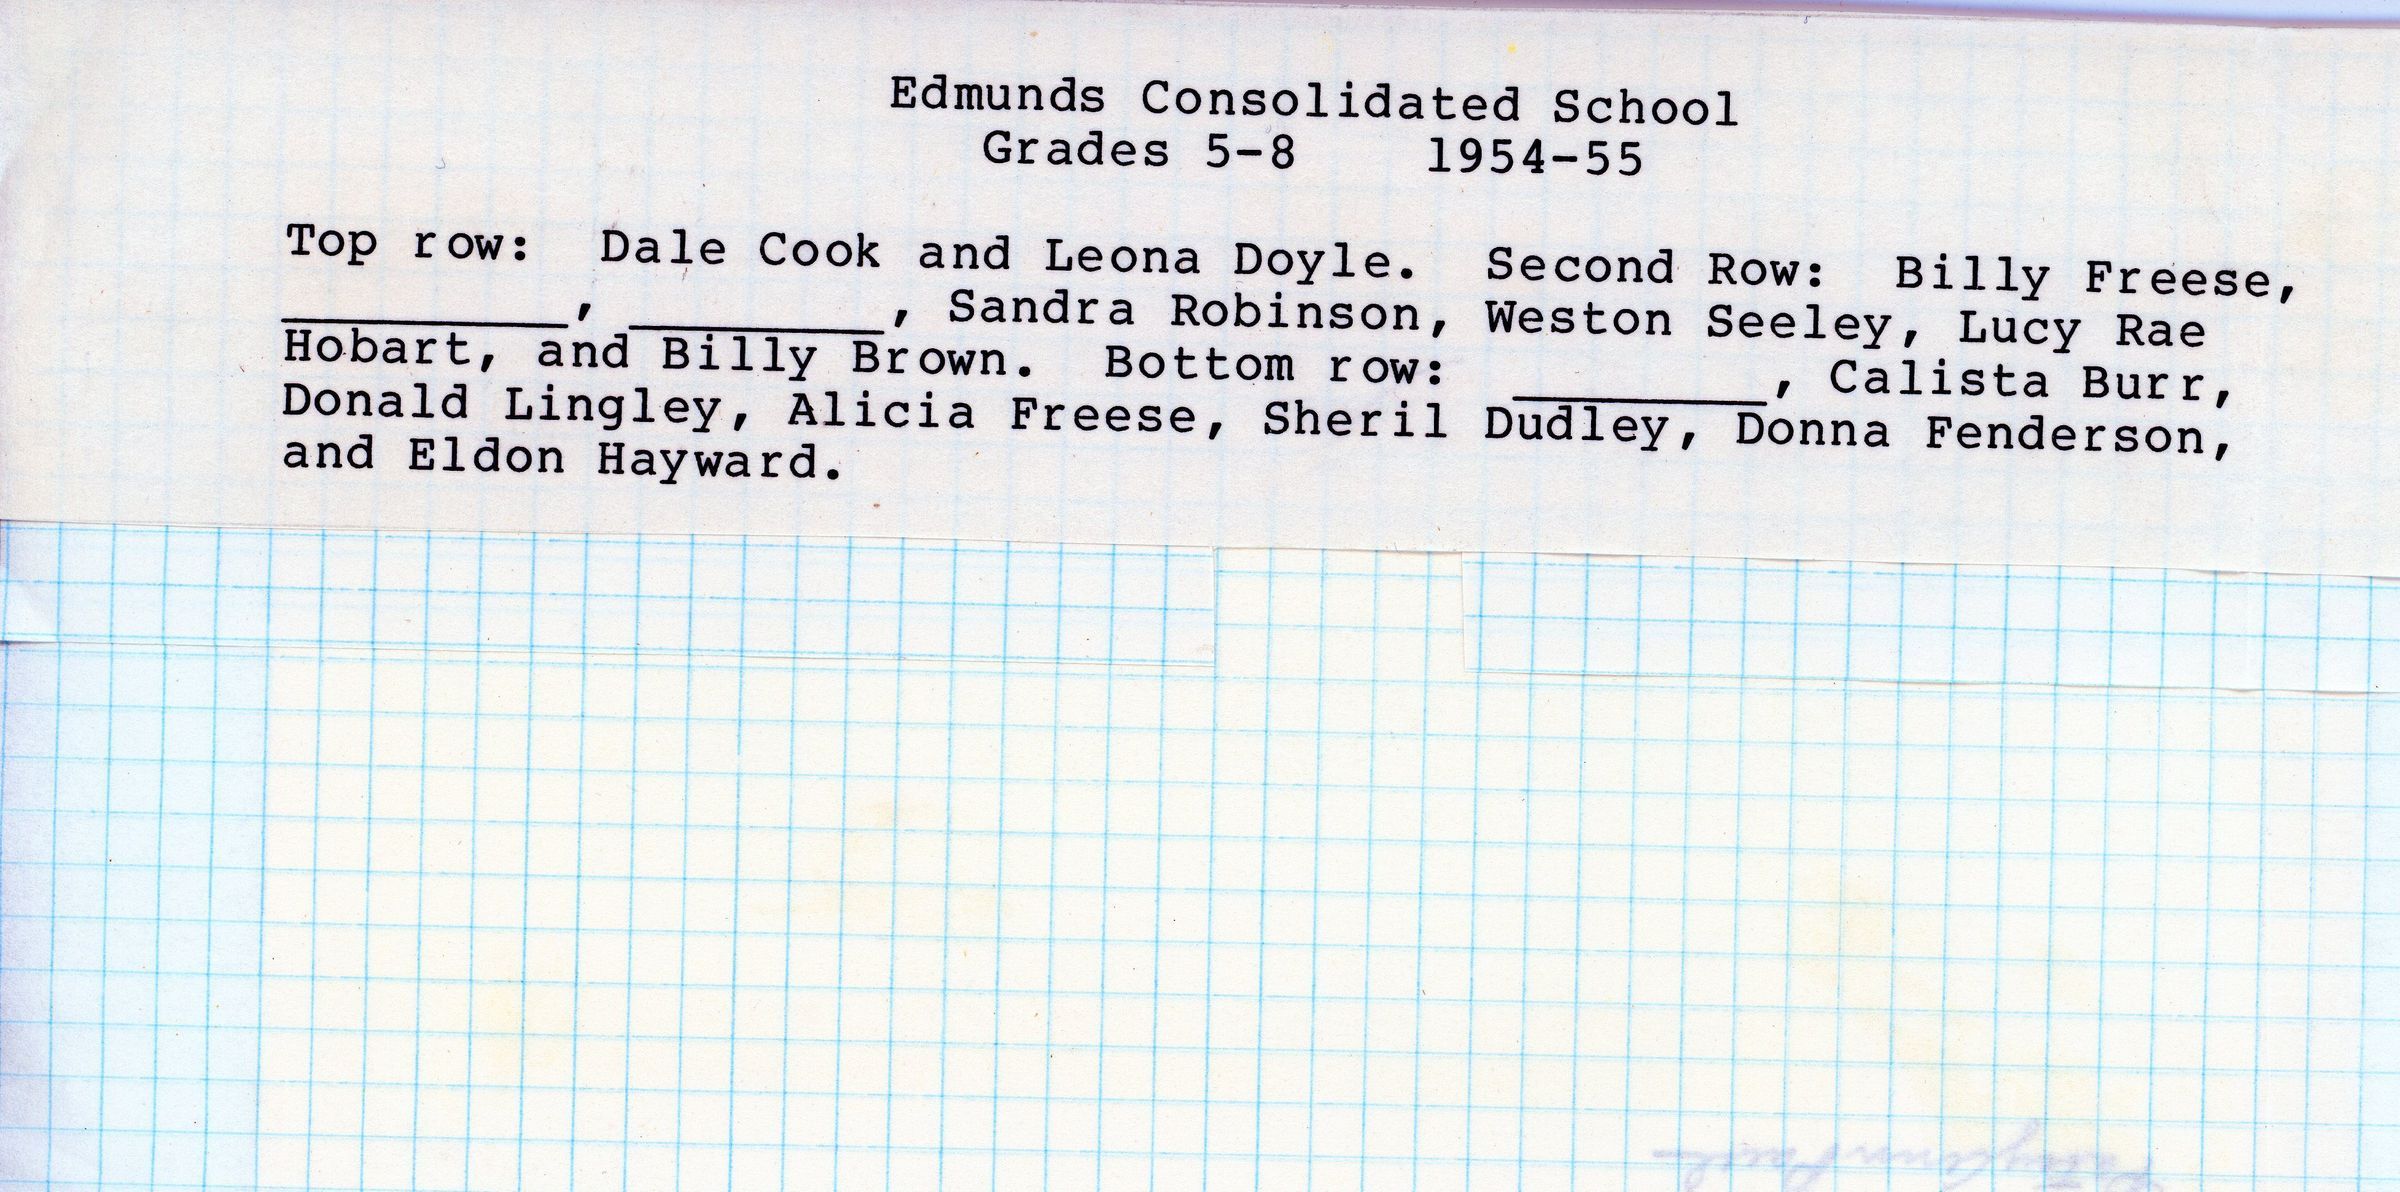 Edmunds Consolidated School
Grades 5-8 1954-55
Top row: Dale Cook and Leona Doyle. Second Row: Billy Freese,
_________, ________, Sandra Robinson, Weston Seeley, Lucy Rae
Hobart, and Billy Brown. Bottom row: ________, Calista Burr,
Donald Lingley, Alicia Freese, Sheril Dudley, Donna Fenderson,
and Eldon Hayward.